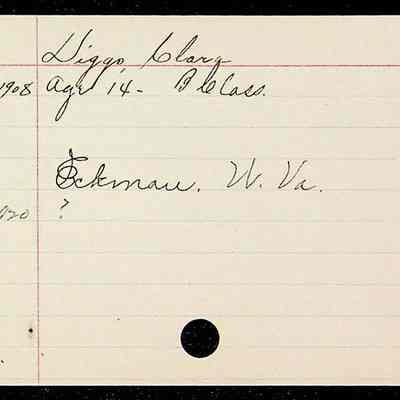 Diggs, Clary
1908 Age 14 - B Class.
Eckman. W. Va.
1920 ?